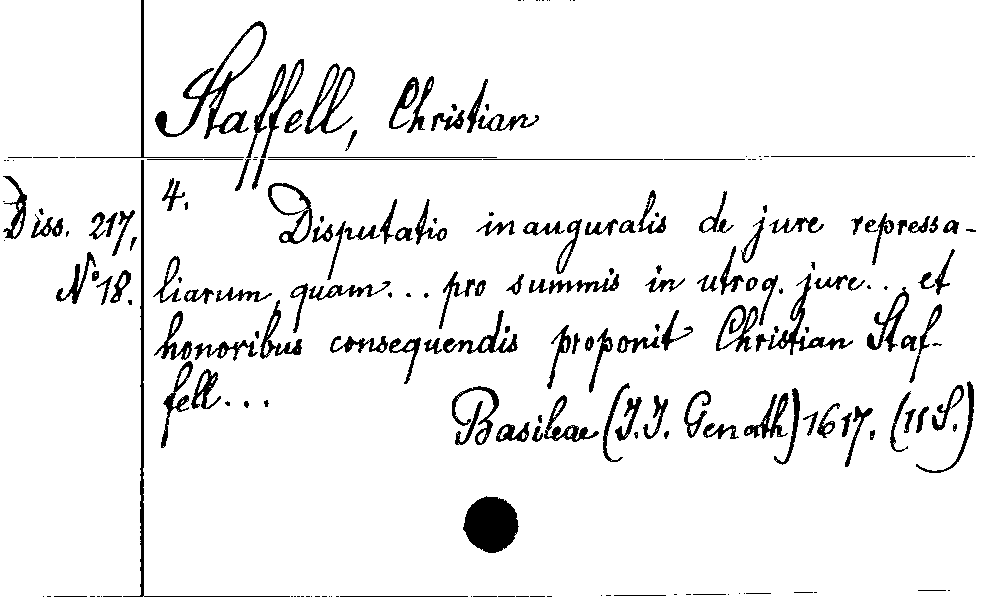 Staffell, Christian
4.
Diss. 217, Disputatio inauguralis de jure repressa-
No 18. liarum, quam... pro summis in utroq. jure... et
honoribus consequendis proponit Christian Staf-
fell...
Basileae (J.J. Genath) 1617. (11 S.)